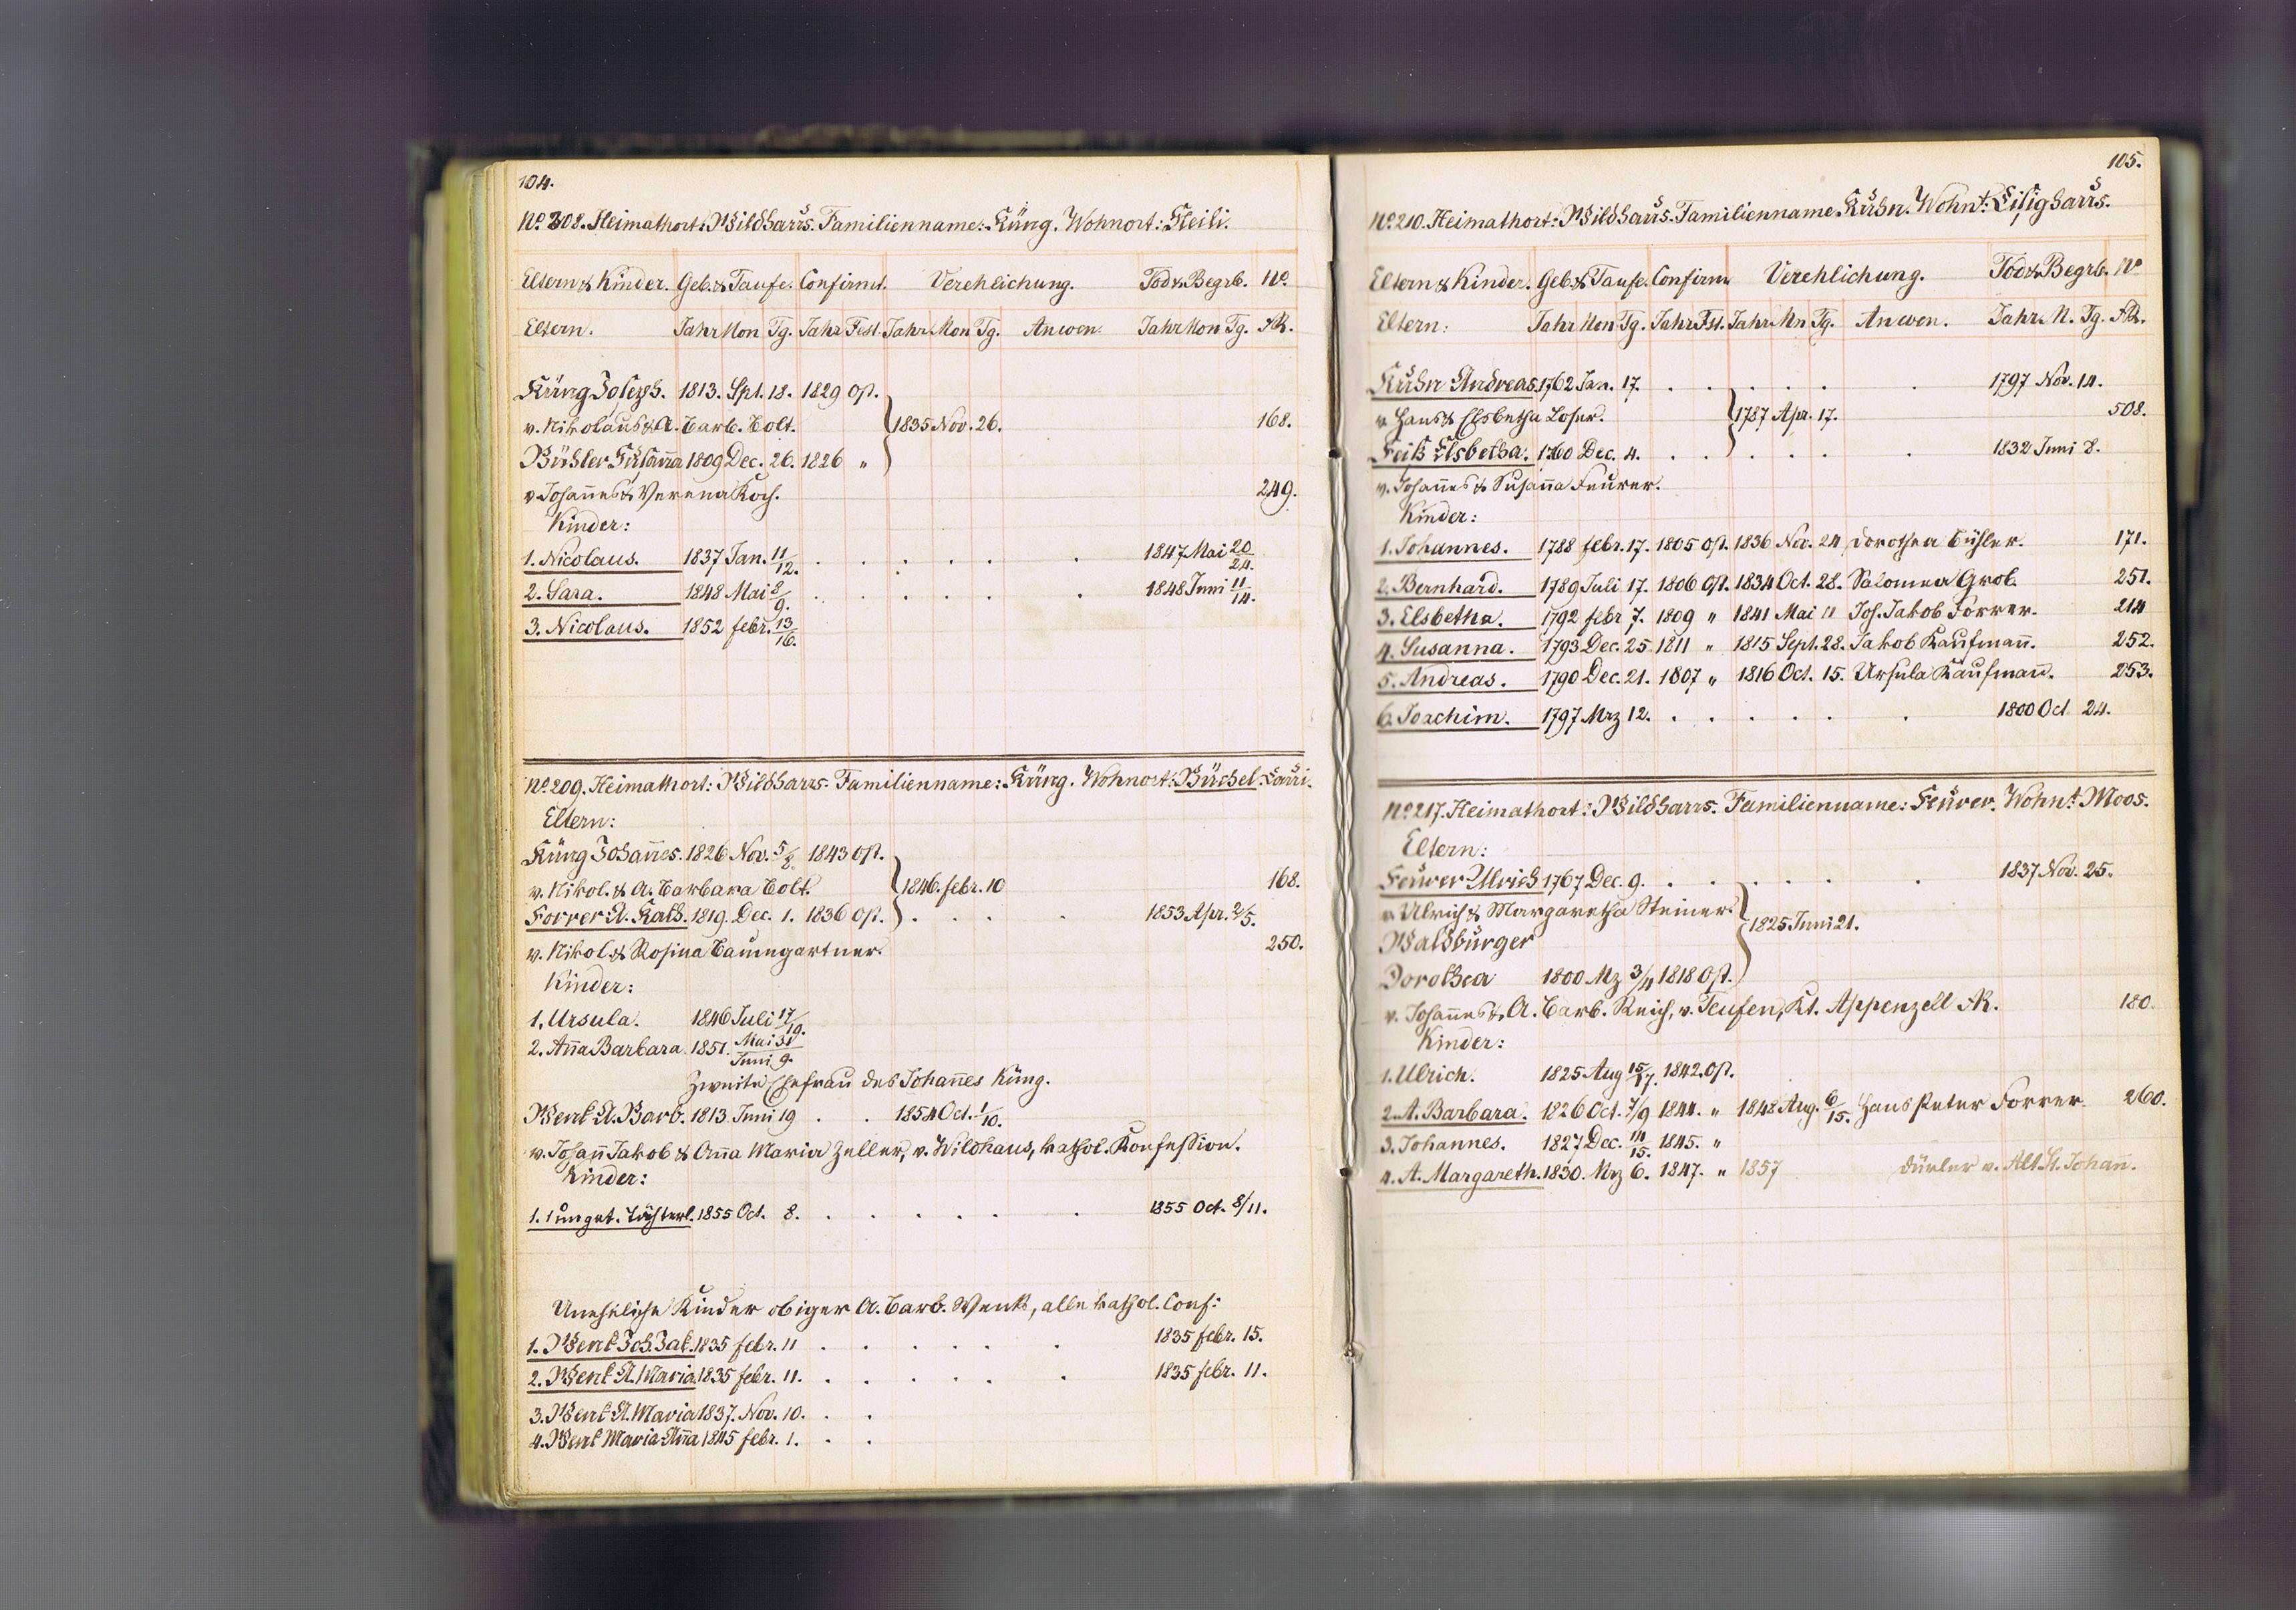 104.
No. 208. Heimathort: Wildhaus. Familienname: Küng. Wohnort:
Eltern & Kinder. Geb. & Taufe. Confirmt. Verehlichung. Tod & Begrb. No.
Eltern. Jahr Mon Tg. Jahr Fest. Jahr Mon Tg. Anwen. Jahr Mon Tg. FR.
Küng Joseph. 1813. Spt. 18. 1829 Ost.
v. Nikolaus & A. Barb. Bolt. 1835 Nov. 26. 168.
Bühler Susanna 1809 Dec. 26. 1826 "
v. Johannes & Verena Koch. 249.
Kinder:
1. Nicolaus. 1837 Jan. 11/12. . . . . . . 1847 Mai 20/24.
2. Sara. 1848 Mai 8/9. . . . . . . 1848 Juni 11/14.
3. Nicolaus. 1852 febr. 13/16.
No. 209. Heimathort: Wildhaus. Familienname: Küng. Wohnort: Büchel
Eltern:
Küng Johannes. 1826 Nov. 5/ 1843 Ost.
v. Nikol. & A. Barbara Bolt. 1846. febr. 10 168.
Forrer A. Kath. 1819. Dec. 1. 1836 Ost. . . . . 1853 Apr. 2/5.
v. Nikol. & Rosina Baumgartner. 250.
Kinder:
1. Ursula. 1846 Juli 17/19.
2. Anna Barbara. 1851. Mai 31/Juni 9.
Zweite Ehefrau des Johannes Küng.
Wenk A. Barb. 1813 Juni 19 . . 1854 Oct. 1/10.
v. Johann Jakob & Anna Maria Zeller, v. Wildhaus, kathol. Konfession.
Kinder:
1. 1 unget. Töchterl. 1855 Oct. 8. . . . . . . 1855 Oct. 8/11.
Uneheliche Kinder obiger A. Barb. Wenk, alle kathol. Conf:
1. Wenk Joh. Jak. 1835 febr. 11 . . . . . . 1835 febr. 15.
2. Wenk A. Maria 1835 febr. 11. . . . . . . 1835 febr. 11.
3. Wenk A. Maria 1837. Nov. 10. . .
4. Wenk Maria Anna 1845 febr. 1. . .
105.
No. 210. Heimathort: Wildhaus. Familienname Kuhn. Wohnt:
Eltern & Kinder. Geb. & Taufe. Confirm Verehlichung. Tod & Begrb. No
Eltern: Jahr Mon Tg. Jahr Fst. Jahr Mn Tg. Anwen. Jahr. M. Tg. FR.
Kuhn Andreas 1762 Jan. 17. . . . . . . 1797 Nov. 14.
v. Hans & Elsbetha Loser. 1787 Apr. 17. 508.
Feiß Elsbetha. 1760 Dec. 4. . . . . . . 1832 Juni 8.
v. Johannes & Susanna Feurer.
Kinder:
1. Johannes. 1788 febr. 17. 1805 Ost. 1836 Nov. 24 Dorothea Bühler. 171.
2. Bernhard. 1789 Juli 17. 1806 Ost. 1834 Oct. 28. Salomea Grob. 251.
3. Elsbetha. 1792 febr. 7. 1809 " 1841 Mai 11 Joh. Jakob Forrer. 214
4. Susanna. 1793 Dec. 25. 1811 " 1815 Sept. 28. Jakob Kaufmann. 252.
5. Andreas. 1790 Dec. 21. 1807 " 1816 Oct. 15. Ursula Kaufmann. 253.
6. Joachim. 1797 Mrz 12. . . . . . . 1800 Oct. 24.
No. 217. Heimathort: Wildhaus. Familienname: Feurer. Wohnt: Moos.
Eltern:
Feurer Ulrich 1767 Dec. 9. . . . . . . 1837 Nov. 25.
v. Ulrich & Margaretha Steiner. 1825 Juni 21.
Waldburger
Dorothea 1800 Mz 3/4 1818 Ost.
v. Johannes & A. Barb. Reich, v. Teufen, Kt. Appenzell AR. 180.
Kinder:
1. Ulrich. 1825 Aug 15/17. 1842. Ost.
2. A. Barbara. 1826 Oct. 7/9 1844. " 1848 Aug. 6/15. Hans Peter Forrer. 260.
3. Johannes. 1827 Dec. 14/15. 1845. "
4. A. Margareth. 1830. Mrz 6. 1847. " 1857 Dürler v. Alt St. Johann.